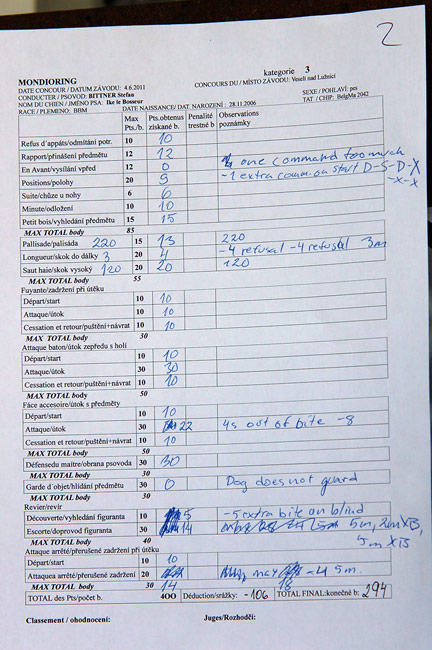 2
MONDIORING
kategorie 3
DATE CONCOUR / DATUM ZÁVODU: 4.6.2011
CONCOURS DU / MÍSTO ZÁVODU: Veselí nad Lužnicí
CONDUCTER / PSOVOD: BITTNER Stefan
NOM DU CHIEN / JMÉNO PSA: Ike le Bosseur
SEXE / POHLAVÍ: pes
RACE / PLEMENO: BBM
DATE NAISSANCE/ DAT. NAROZENÍ : 28.11.2006
TAT / CHIP: BelgMa 2042
Max Pts./b. Pts.obtenus získané b. Penalité trestné b Observations poznámky
Refus d'appâts/odmítání potr. 10 10
Rapport/přinášení předmětu 12 12
En Avant/vysílání vpřed 12 0 one command too much
Positions/polohy 20 9 -1 extra command start D-S-D-X
-X-X
Suite/chůze u nohy 6 6
Minute/odložení 10 10
Petit bois/vyhledání předmětu 15 15
MAX TOTAL body 85
Pallisade/palisáda 220 15 13 220
Longueur/skok do dálky 3 20 4 -4 refusal -4 refusal 3m
Saut haie/skok vysoký 120 20 20 120
MAX TOTAL body 55
Fuyante/zadržení při útěku
Départ/start 10 10
Attaque/útok 10 10
Cessation et retour/puštění+návrat 10 10
MAX TOTAL body 30
Attaque baton/útok zepředu s holí
Départ/start 10 10
Attaque/útok 30 30
Cessation et retour/puštění+návrat 10 10
MAX TOTAL body 50
Fáce accesoire/útok s předměty
Départ/start 10 10
Attaque/útok 30 22 4s out of bite -8
Cessation et retour/puštění+návrat 10 10
MAX TOTAL body 50
Défensedu maitre/obrana psovoda 30 30
MAX TOTAL body 30
Garde d'objet/hlídání předmětu 30 0 Dog does not guard
MAX TOTAL body 30
Revier/revír
Découverte/vyhledání figuranta 10 5 -5 extra bite on blind
Escorte/doprovod figuranta 30 14 5m, 2m XB,
5m XB
MAX TOTAL body 40
Attaque arrêté/přerušené zadržení při útěku
Départ/start 10 10
Attaquea arrêté/přerušené zadržení 20 max -4 5m.
MAX TOTAL body 30 14 18
TOTAL des Pts/počet b. 400 Déduction/srážky: -106 TOTAL FINAL:konečné b: 294
Classement / ohodnocení: Juges/Rozhodčí: